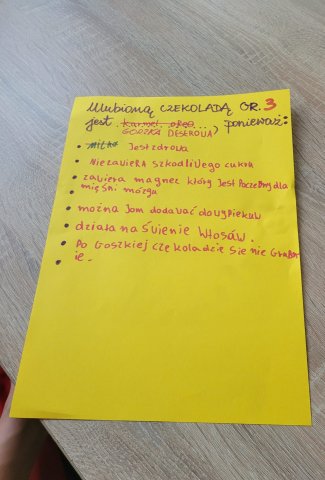 Ulubioną CZEKOLADĄ GR. 3
jest karmel, oreo..., ponieważ:
GORZKA DESEROWA
• Milka Jest zdrowa
• Niezawiera szkodliwego cukru
• zawiera magnez który jest poczebny dla
• mięśni mózgu
• można jom dodawać do wypiekuw
• działa na śnienie włosów.
• Po Goszkiej czekoladzie sie nie Grubnie
• ie.